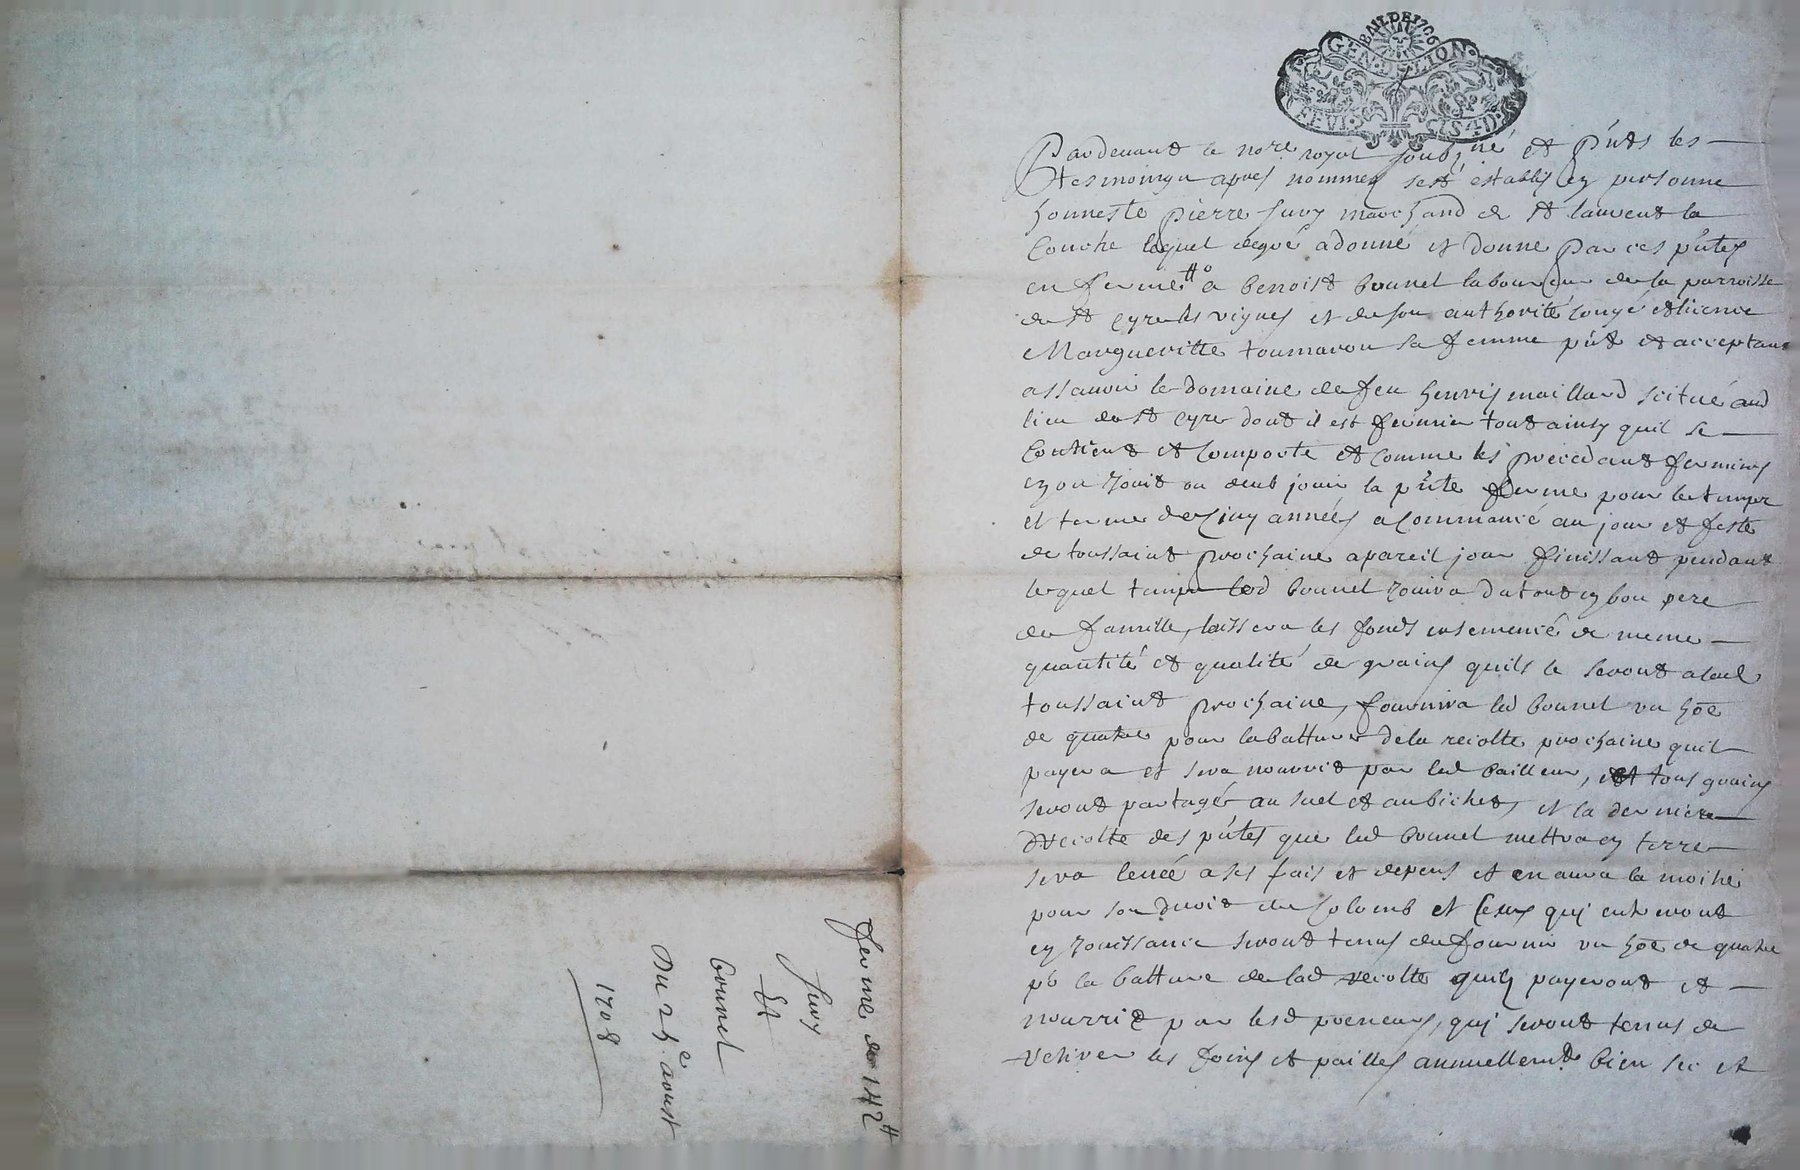 BAIL DE 1706
GEN. DE LION
Pardevant le no.re royal soubz.né et p'nts les
tesmoingz apres nommez sest establis en personne
honneste pierre Juvy marchand de st laurent la
Conche lequel degré a donné et donne par ces p'ntes
en ferme a benoist bounel laboureur de la parroisse
de st Cyre les vignes et de son authorité congé et licence
Margueritte toumarou sa femme p'nt et acceptant
assavoir le domaine de feu henris maillard scitué aud
lieu de st Cyre dont il est fermier tout ainsy quil se
Contient et Comporte et comme les precedant fermiers
en on Jouit ou deub jouir la p'nte ferme pour le temps
et terme de Cinq années a Commancé au jour et feste
de toussaint prochaine a pareil jour finissant pendant
lequel temps led bounel Jouira du tout en bon pere
de famille, laissera les fonds ensemencé de meme
quantité et qualité de grains quils le seront alad
toussaint prochaine, fournira led bounel un hoe
de quatre pour la batture de la recolte prochaine quil
payera et sera nourrit par led bailleur, et tous grains
seront partagés au suel et au bichet, et la derniere
Recolte des p'ntes que led bounel mettra en terre
sera levée a ses frais et depens et en aura la moitié
pour son droit de Colomb et Ceux qui entreront
en Jouissance seront tenus de fournir un hoe de quatre
pr la batture de lad recolte quilz payeront et
nourrit par lesd preneurs, qui seront tenus de
retirer les foins et pailles annuellemt bien sec et
ferme de 142 tt
Juvy
Et
bounel
Du 25e aoust
1708